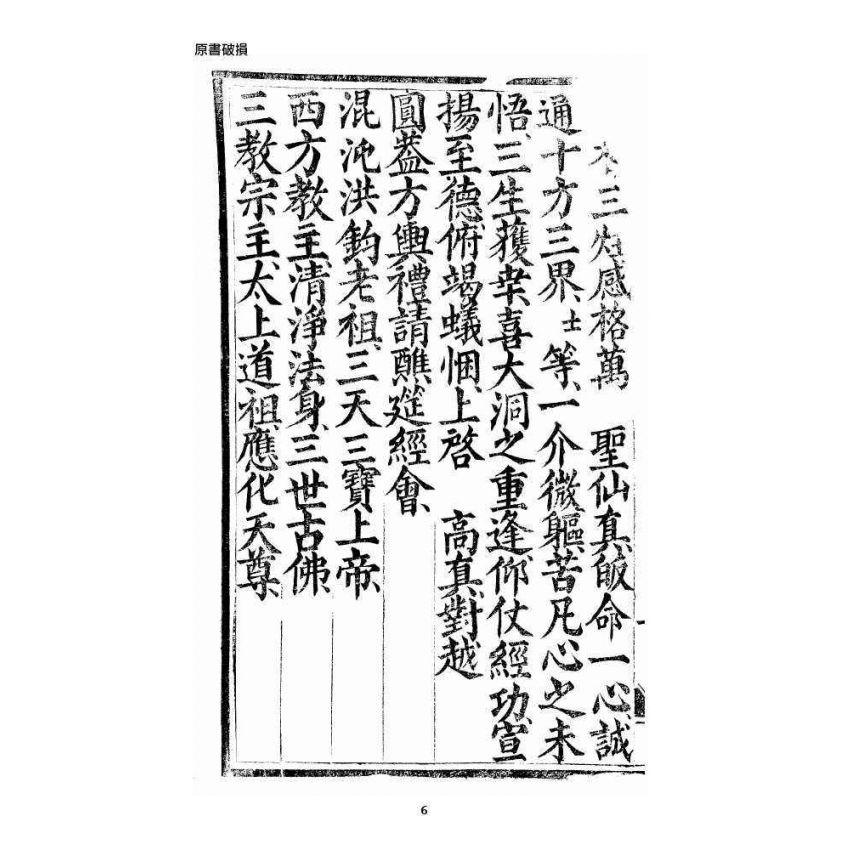 原書破損
三炷感格萬 聖仙真皈命一心誠
通十方三界、士 等、一介微軀、苦凡心之未
悟、三生獲幸、喜大洞之重逢、仰仗經功、宣
揚至德、俯竭蟻悃、上啓 高真、對越
圓蓋方輿、禮請醮筵經會、
混沌洪鈞老祖、三天三寶上帝、
西方教主、清淨法身、三世古佛、
三教宗主、太上道祖、應化天尊、
6